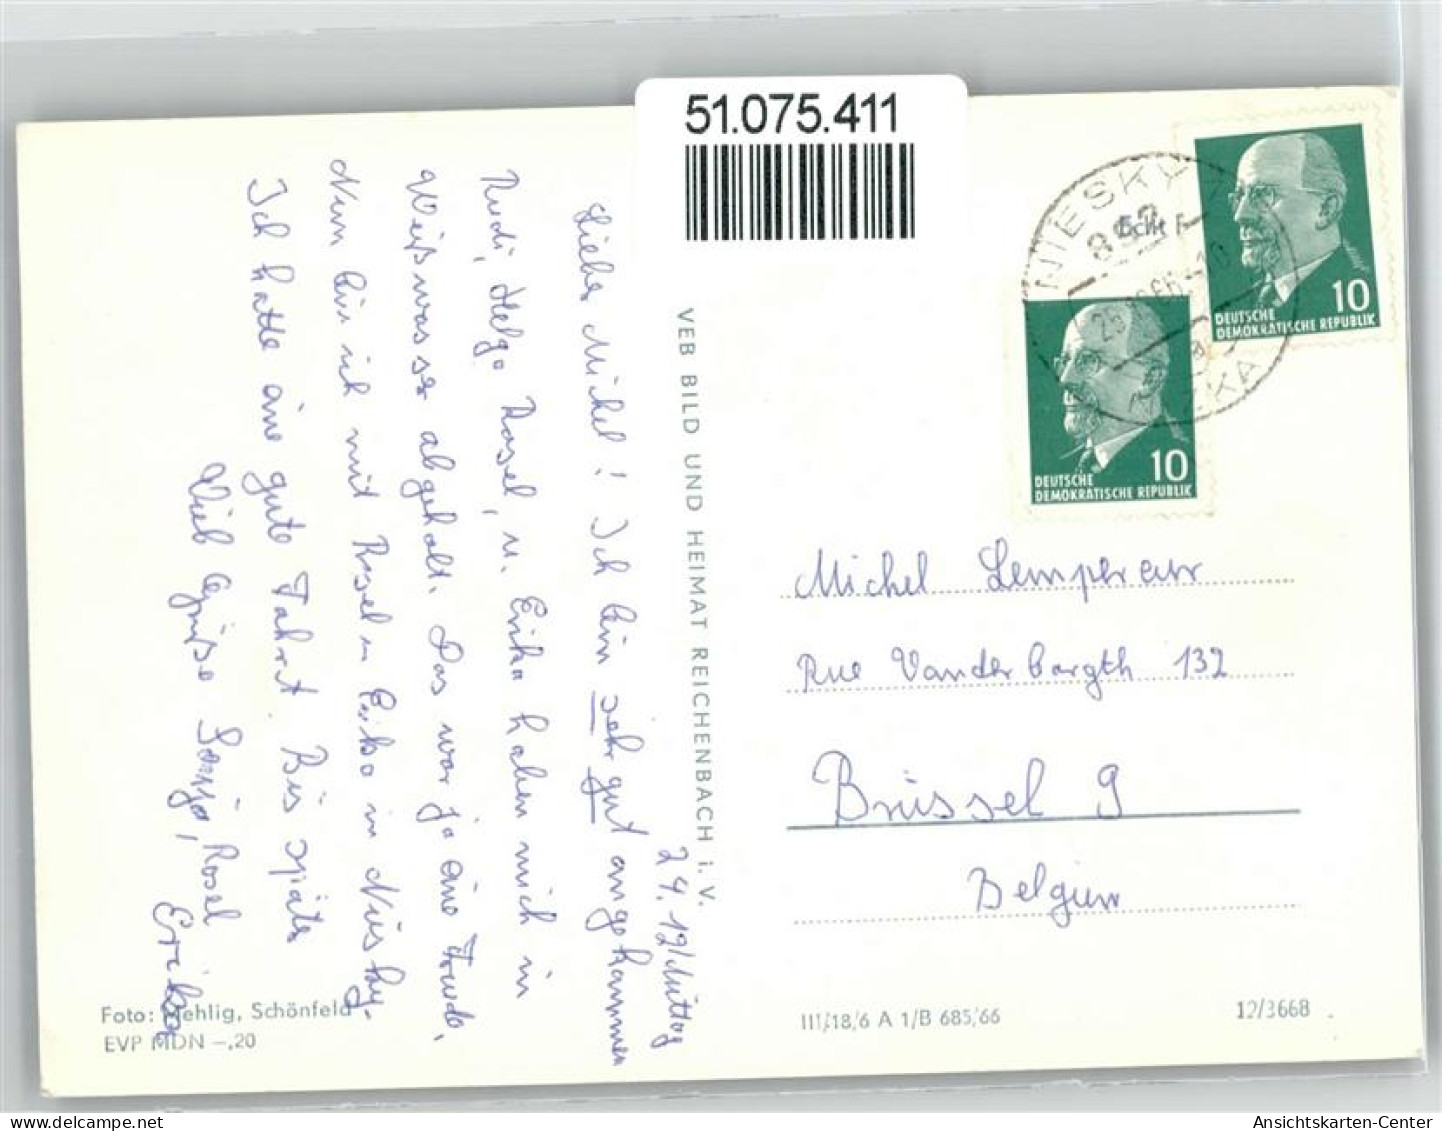 51.075.411
24. 12/Mittag
Lieber Michel! Ich bin sehr gut angekommen
Rudi, Helga Rosel, u. Erika haben mich in
Weißwasser abgeholt. Das war ja eine Freude,
Nun bin ich mit Rosel u Erika in Niesky.
Ich hatte eine gute Fahrt. Bis später
Viele Grüße Sonja, Rosel
Erika
VEB BILD UND HEIMAT REICHENBACH i. V.
Foto: Mehlig, Schönfeld
EVP MDN –,20
NIESKY
892
Echt F
10
DEUTSCHE
DEMOKRATISCHE REPUBLIK
10
DEUTSCHE
DEMOKRATISCHE REPUBLIK
Michel Lempereur
Rue Vanderborgth 132
Brüssel 9
Belgien
III/18/6 A 1/B 685/66
12/3668
Ansichtskarten-Center